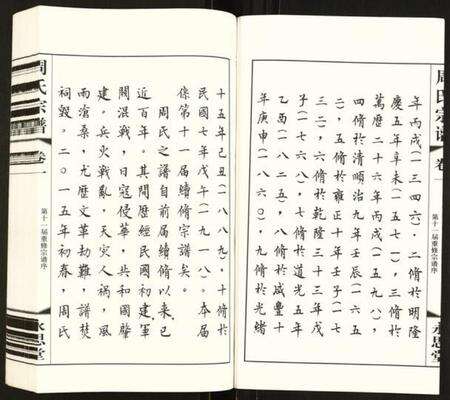 周氏宗譜
卷一
第十一屆重修宗譜序
永思堂
年丙戌（一三四六）二修於明隆
慶五年辛未（一五七一），三修於
萬歷二十六年丙戌（一五九八），
四修於清順治九年壬辰（一六五
二），五修於雍正十年壬子（一七
三二），六修於乾隆三十三年戊
子（一七六八），七修於道光五年
乙酉（一八二五），八修於咸豐十
年庚申（一八六〇），九修於光緒
十五年己丑（一八八九），十修於
民國七年戊午（一九一八）。本屆
係第十一屆續修宗譜矣。
周氏之譜自前屆續修以來，已
近百年。其間歷經民國初建軍
閥混戰，日寇侵華，共和國肇
建。兵火戰亂，天災人禍，風
雨滄桑，尤歷文革劫難，譜焚
祠毀。二〇一五年初春，周氏
周氏宗譜
卷一
第十一屆重修宗譜序
永思堂